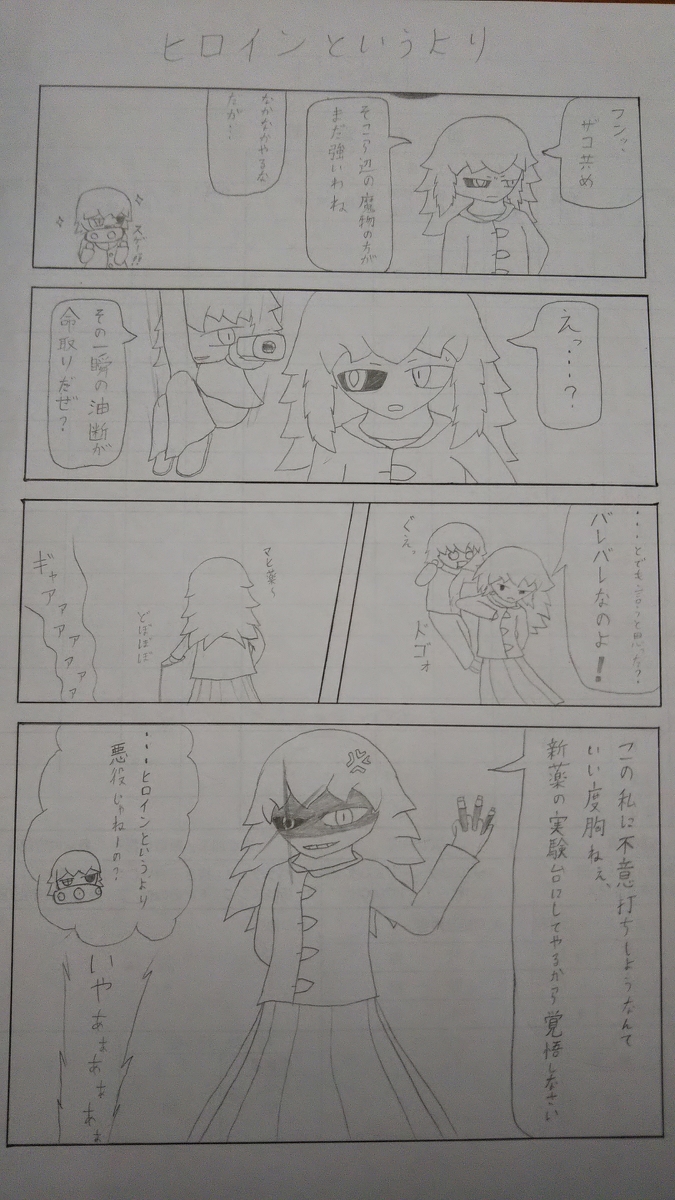 ヒロインというより
フンッ、
ザコ共め
そこら辺の魔物の方が
まだ強いわね
なかなかやるな
だが…
スゲー!!
えっ…?
その一瞬の油断が
命取りだぜ?
…とでも言うと思った?
バレバレなのよ!
ぐえっ
ドゴォ
マヒ薬〜
どぼぼぼ
ギャアァァァァァァ
この私に不意打ちしようなんて
いい度胸ねぇ、
新薬の実験台にしてやるから覚悟しなさい
…ヒロインというより
悪役じゃねーの?
いやぁぁぁぁぁ